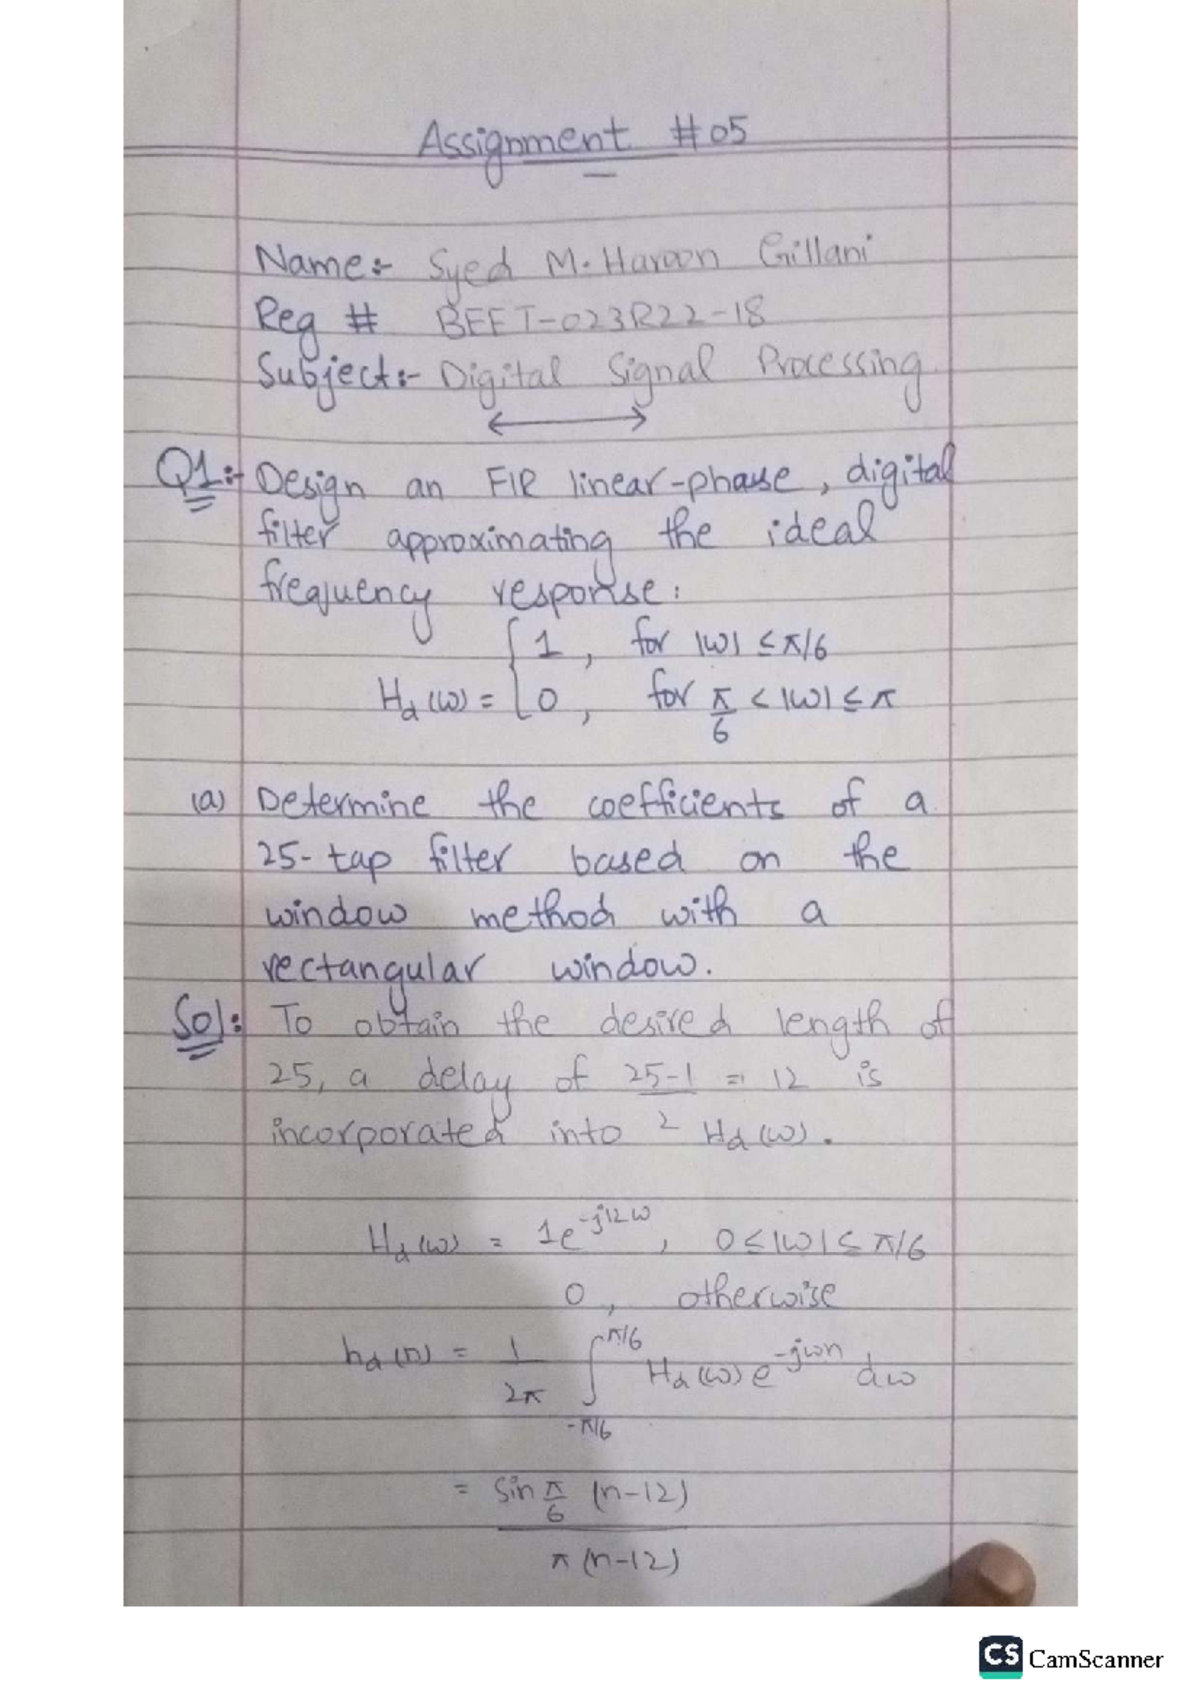 Assignment #05
Name:- Syed M. Haroon Gillani
Reg # BEET-023R22-18
Subject:- Digital Signal Processing
Q1:- Design an FIR linear-phase, digital
filter approximating the ideal
frequency response:
H_d(ω) = { 1, for |ω| ≤ π/6
0, for π/6 < |ω| ≤ π
(a) Determine the coefficients of a
25-tap filter based on the
window method with a
rectangular window.
Sol: To obtain the desired length of
25, a delay of (25-1)/2 = 12 is
incorporated into H_d(ω).
H_d(ω) = 1e^{-j12ω}, 0≤|ω|≤ π/6
0, otherwise
h_d(n) = 1/2π ∫_{-π/6}^{π/6} H_d(ω) e^{-jωn} dω
= sin π/6 (n-12)
π(n-12)
CS CamScanner